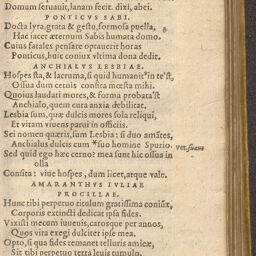 Domum seruauit, lanam fecit. dixi, abei.
PONTICVS SABI.
Docta lyra, grata & gestu, formosa puella,
Hac iacet æternum Sabis humata domo.
Cuius fatales pensare optauerit horas
Ponticus, huic coniux vltima dona dedit.
ANCHIALVS LESBIAE.
Hospes sta, & lacruma, si quid humanit*in te'st,
Ossua dum cernis consita mœsta mihi.
Quoius laudati mores, & forma probata'st
Anchialo, quem cura anxia debilitat.
Lesbia sum, quæ dulcis mores sola reliqui,
Et vitam viuens parui in officiis.
Sei nomen quæris, sum Lesbia: si duo amātes,
Anchialus dulcis cum *suo homine Spurio. vet. suaue
Sed quid ego hæc cerno? mea sunt hic ossua in
olla
Consita: viue hospes, dum licet, atque vale.
AMARANTHVS IVLIAE
PROCILLAE.
Hunc tibi perpetuo titulum gratissima coniūx,
Corporis extincti dedicat ipsa fides.
Vixisti mecum iuuenis, carosque per annos,
Quos vita exegi dulciter ipse mea.
Opto, si qua fides remanet telluris amicæ,
Sit tibi perpetuo terra leuis tumulo.